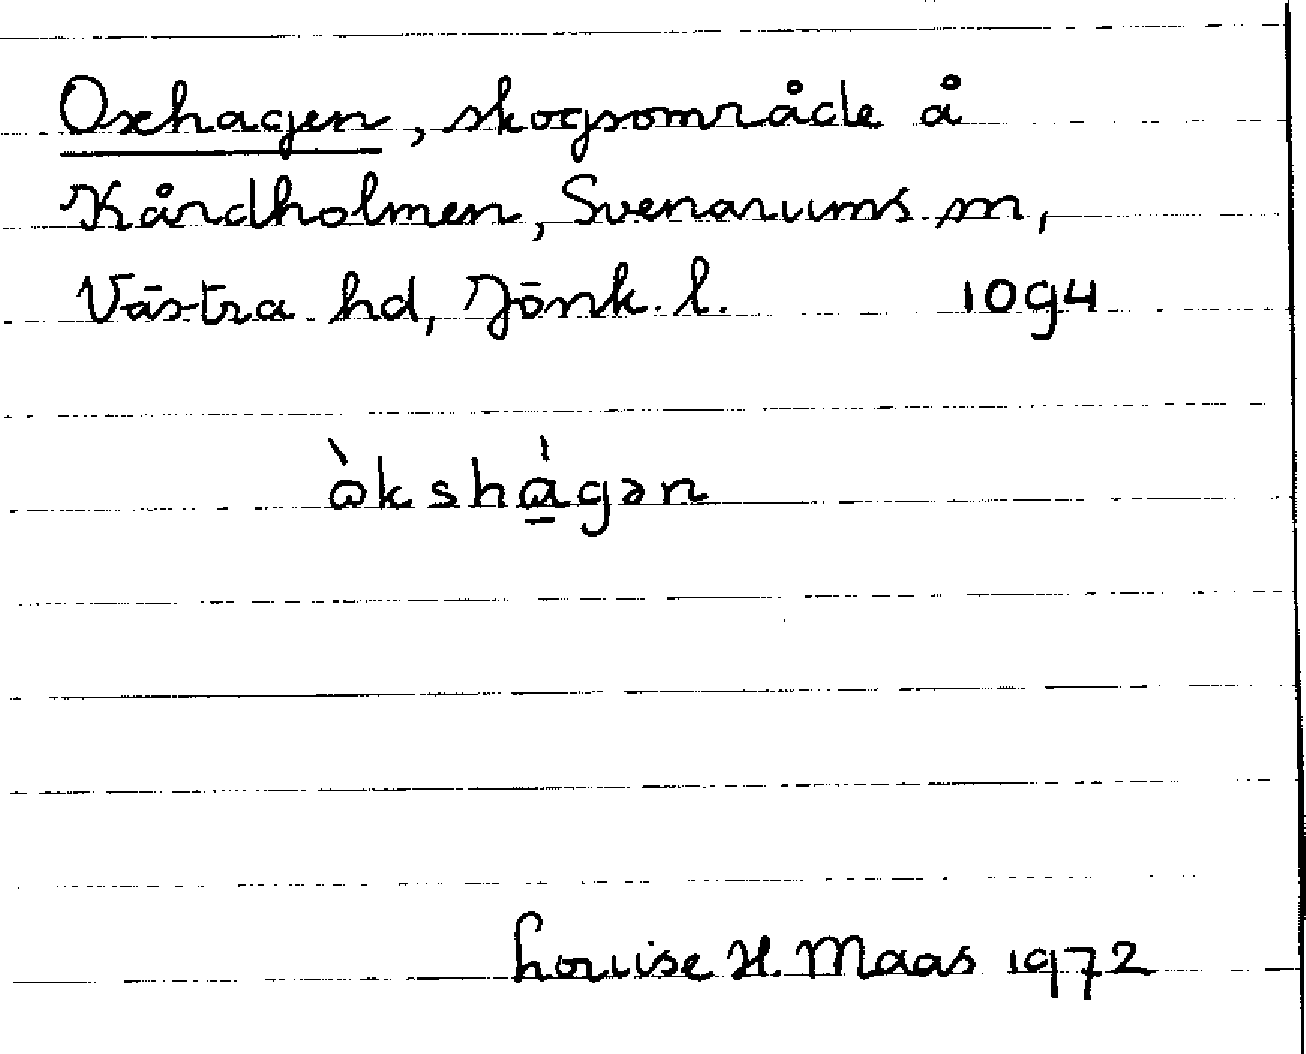 Oxhagen, skogsområde å
Kårdholmen, Svenarums sn,
Västra hd, Jönk. l. 1094
òkshá̱gən
Louise H. Maas 1972